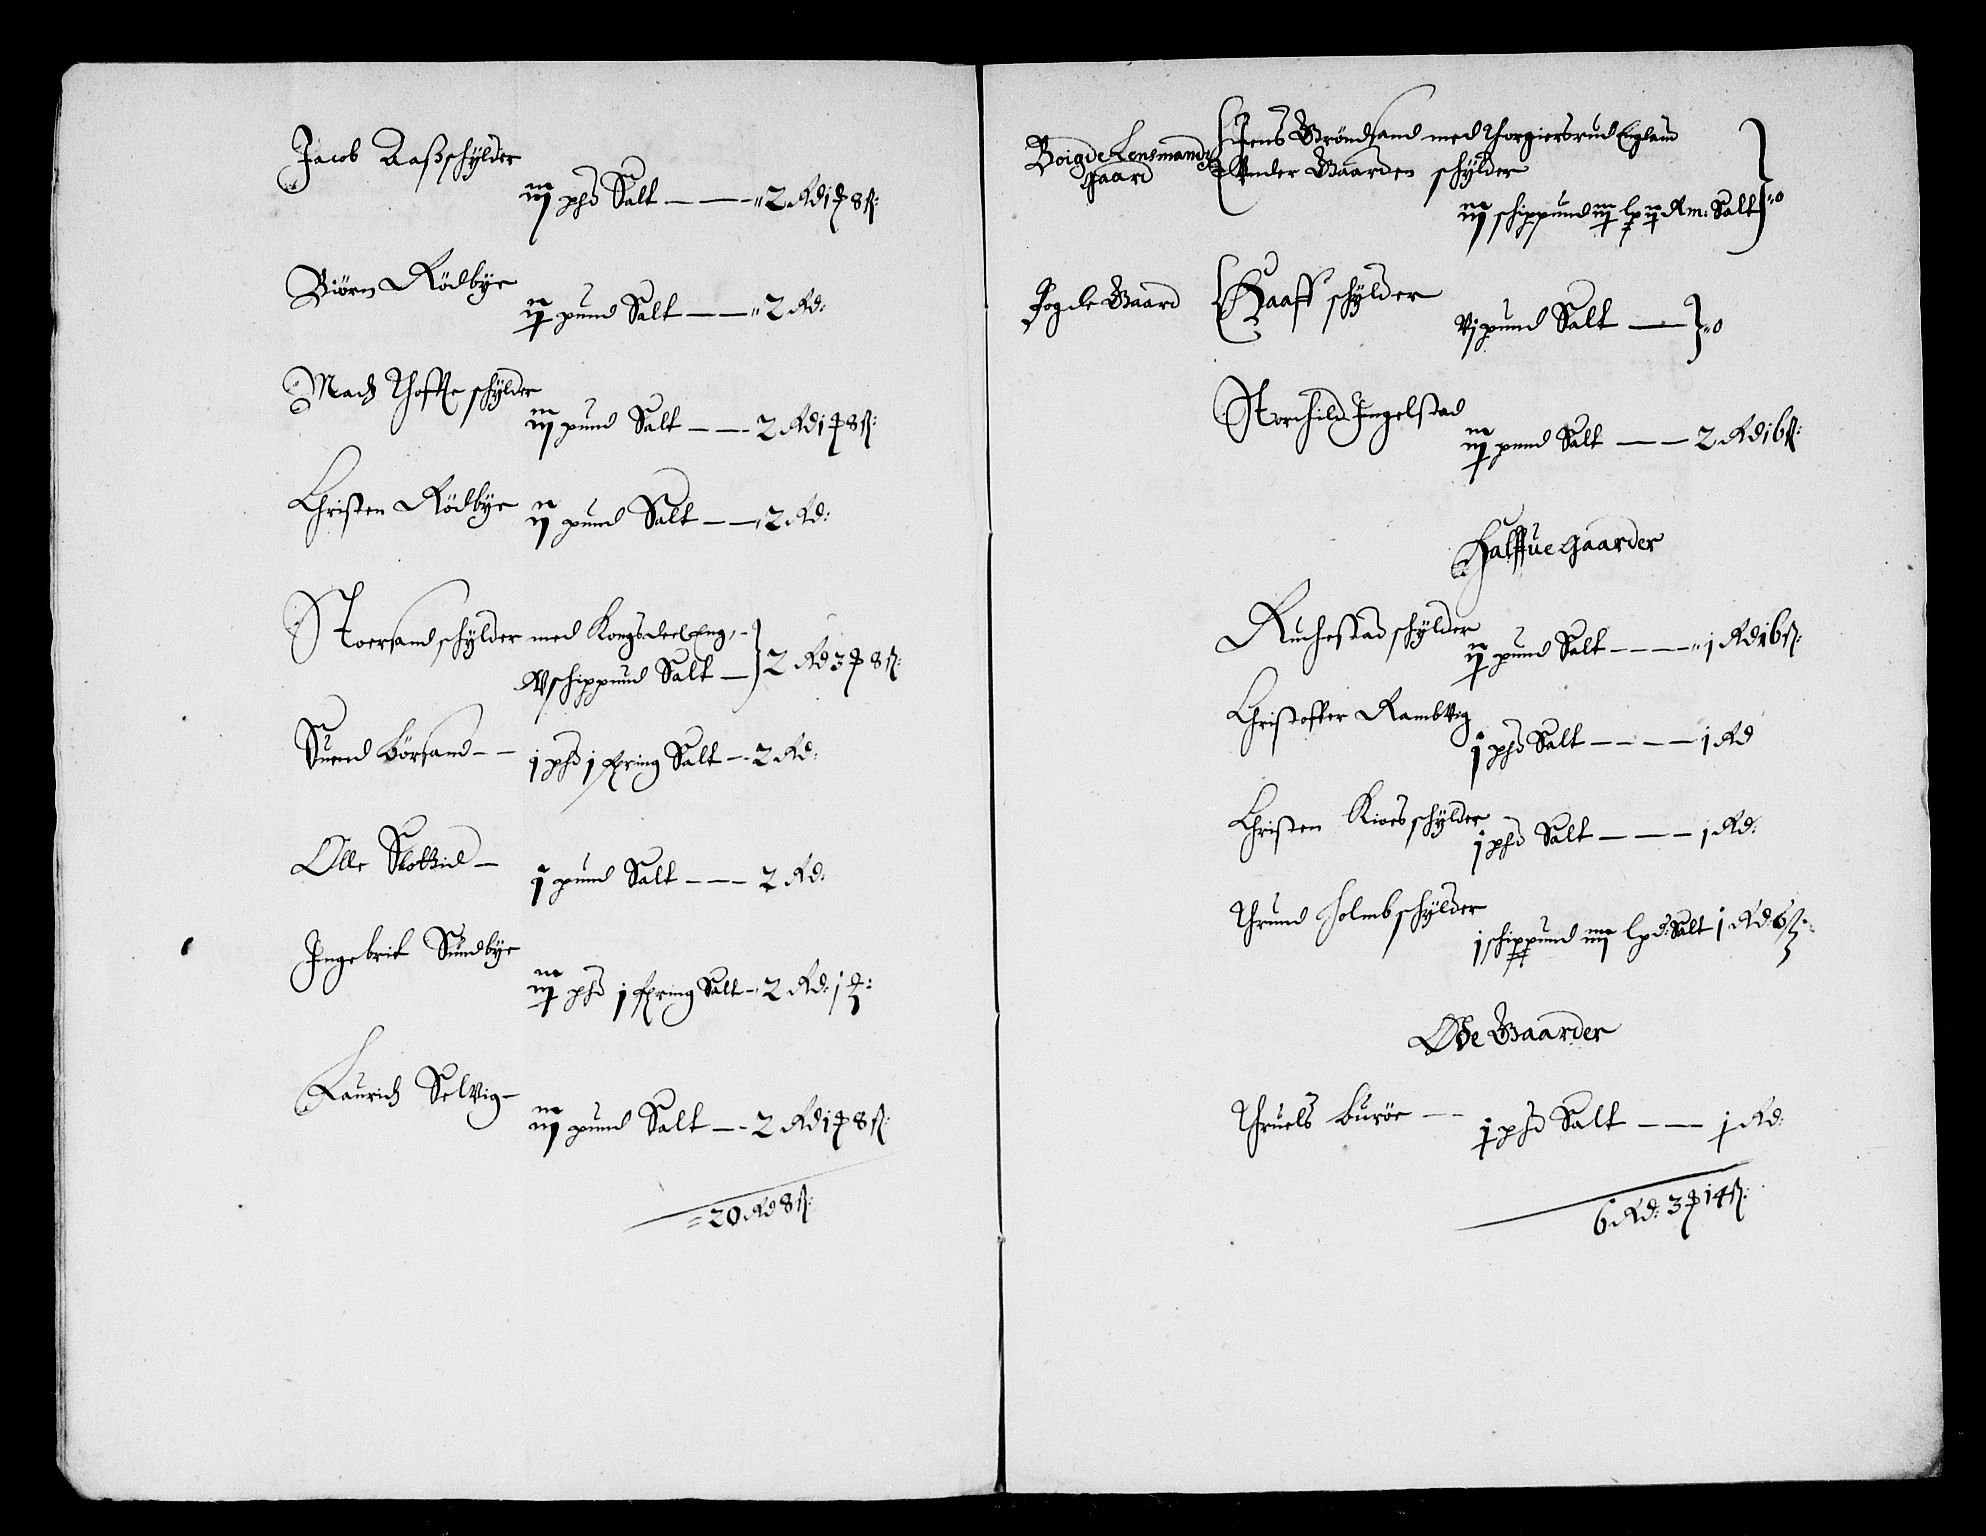 Jacob Aaß schÿlder
iij phd Salt — — — 2 Rd 1 ⁊ 8 ß:
Biörn Rödbÿe
ij pund Salt — — 2 Rd:
Madz Thoffte schÿlder
iij pund Salt — — 2 Rd 1 ⁊ 8 ß:
Christen Rödbÿe ij pund Salt — — 2 Rd:
Stoersand schÿlder med Kongsdeel Eng, -
schippund Salt — 2 Rd 3 ⁊ 8 ß:
Suend Börsand — — j phd j fering Salt — 2 Rd:
Olle Slottid —
j pund Salt — — — 2 Rd:
Ingebrit Sundbÿe
iij phd j fering Salt — 2 Rd: 1 ⁊:
Lauridz Selvig —
iij pund Salt — — 2 Rd 1 ⁊ 8 ß:
= 20 Rd 8 ß:
Boigde Lensmandz gaard
Jens Bröndsand med Thorgiersrud England
Vnder Gaarden schÿlder
iij schippund iij lp ij Rm: Salt } 0
Fogde Gaard
Haaff schÿlder
vj pund Salt — } 0
Torchild Ingelstad
iij pund Salt — — 2 Rd 16 ß:
Halffue gaarder
Ruchestad schÿlder
ij pund Salt — — — 1 Rd 16 ß:
Christoffer Rambvig
j phd Salt — — — — 1 Rd
Christen Kioes schÿlder
j phd Salt — — — 1 Rd:
Thrund Holmb schÿlder
j schippund iiij lpd: Salt 1 Rd: 6 ß:
Öde Gaarder
Thruels Buröe — —
j phd Salt — — 1 Rd:
6 Rd: 3 ⁊ 14 ß: